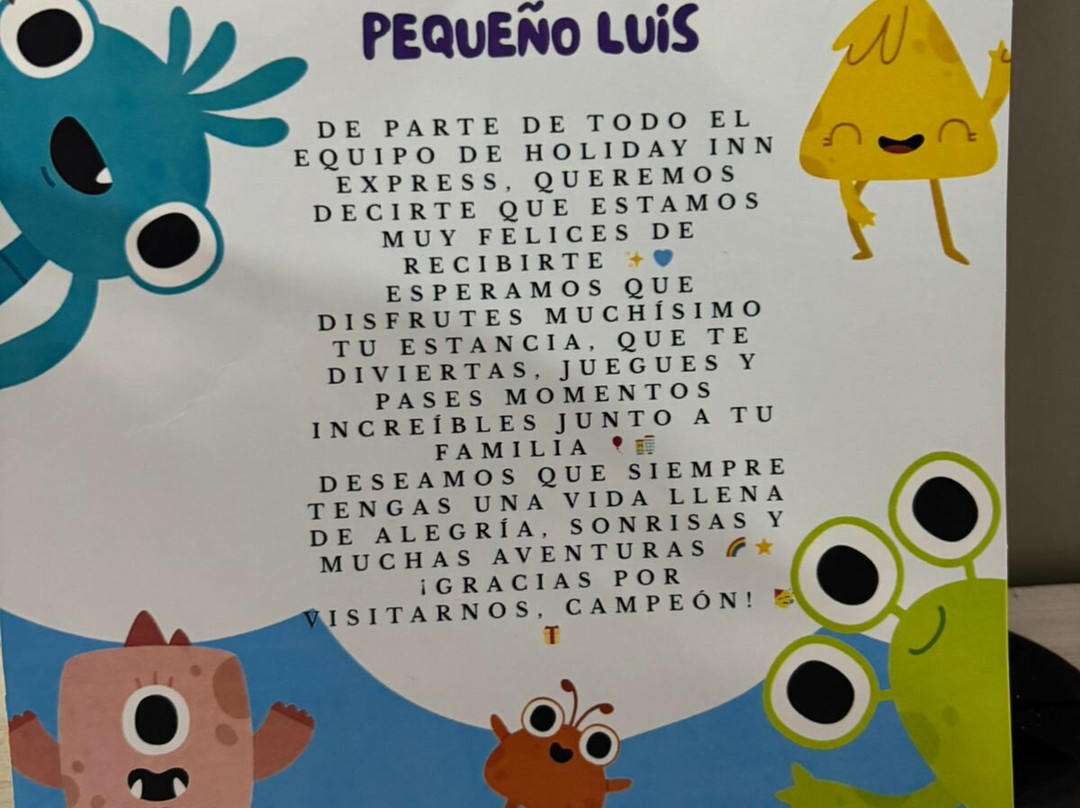 PEQUEÑO LUiS
DE PARTE DE TODO EL
EQUIPO DE HOLIDAY INN
EXPRESS, QUEREMOS
DECIRTE QUE ESTAMOS
MUY FELICES DE
RECIBIRTE ✨💙
ESPERAMOS QUE
DISFRUTES MUCHÍSIMO
TU ESTANCIA, QUE TE
DIVIERTAS, JUEGUES Y
PASES MOMENTOS
INCREÍBLES JUNTO A TU
FAMILIA 🎈🏨
DESEAMOS QUE SIEMPRE
TENGAS UNA VIDA LLENA
DE ALEGRÍA, SONRISAS Y
MUCHAS AVENTURAS 🌈⭐
¡GRACIAS POR
VISITARNOS, CAMPEÓN! 🥳
🎁